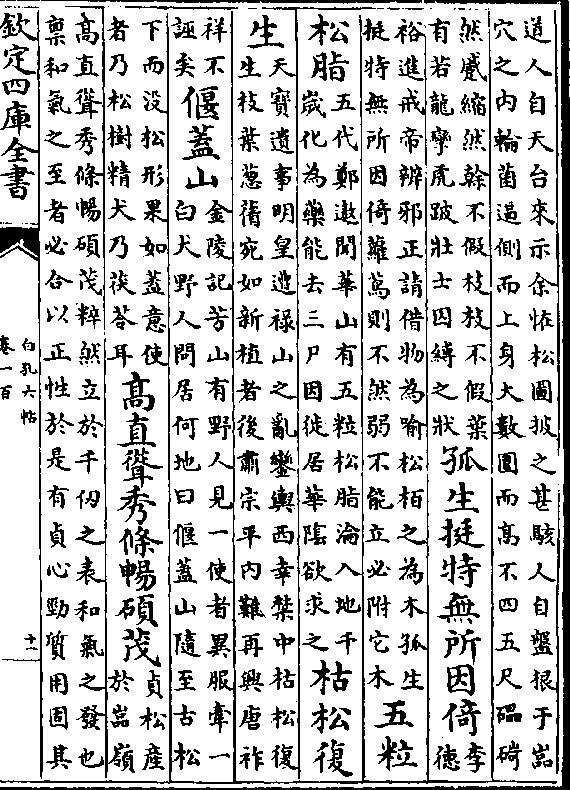 道人自天台來示余恠松圖披之甚駭人自盤根于嵓
穴之内輪菌逼側而上身大數圍而高不四五尺礧砢
然蹙縮然榦不假枝枝不假葉
有若龍攣虎跛壯士囚縛之狀
孤生挺特無所因倚
李
德
裕進戒帝辨邪正請借物為喻松柏之為木孤生
挺特無所因倚蘿蔦則不然弱不能立必附它木
五粒
松脂
五代鄭遨聞華山有五粒松脂淪入地千
歲化為藥能去三尸因徙居華隂欲求之
枯松復
生
天寶遺事明皇遭禄山之亂鑾輿西幸禁中枯松復
生枝葉蔥蒨宛如新植者後肅宗平内難再興唐祚
祥不
誣矣
偃蓋山
金陵記芳山有野人見一使者異服牽一
白犬野人問居何地曰偃蓋山隨至古松
下而没松形果如蓋意使
者乃松樹精犬乃茯苓耳
髙直聳秀條暢碩茂
貞松産
於嵩嶺
髙直聳秀條暢碩茂粹然立於千仭之表和氣之發也
禀和氣之至者必合以正性於是有貞心勁質用固其
欽定四庫全書
白孔六帖
卷一百
十一